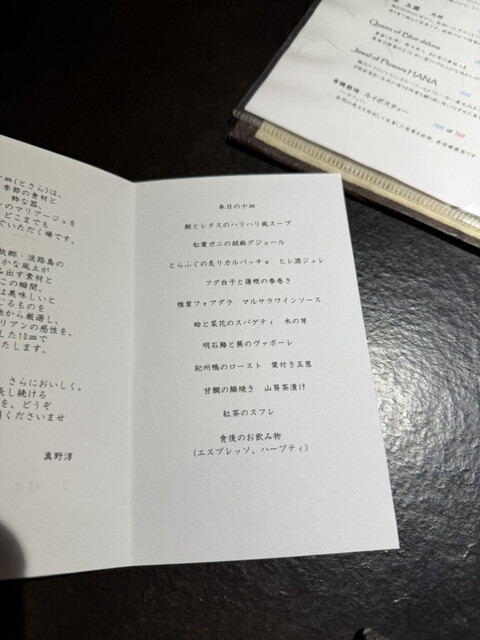 皿(とさら)は、
季節の食材と
粋な器、
のマリアージュを
どこまでも
ていただく場です。
故郷・淡路島の
かな風土が
み出す素材と
この瞬間、
は美味しいと
じるものを
地から厳選し、
リアンの感性を、
した10皿で
たします。
さらにおいしく。
長し続ける
を、どうぞ
くださいませ
真野淳
本日の十皿
鯨とレタスのハリハリ風スープ
松葉ガニの胡麻グジュール
とらふぐの炙りカルパッチョ ヒレ酒ジュレ
フグ白子と蓮根の春巻き
椎茸フォアグラ マルサラワインソース
蛤と菜花のスパゲティ 木の芽
明石鯛と蕪のヴァポーレ
紀州鴨のロースト 葉付き玉葱
甘鯛の鱗焼き 山葵茶漬け
紅茶のスフレ
食後のお飲み物
(エスプレッソ、ハーブティ)
Queen of Blue deluxe
Jewel of Flowers HANA
有機栽培 ルイボスティー
cold or hot